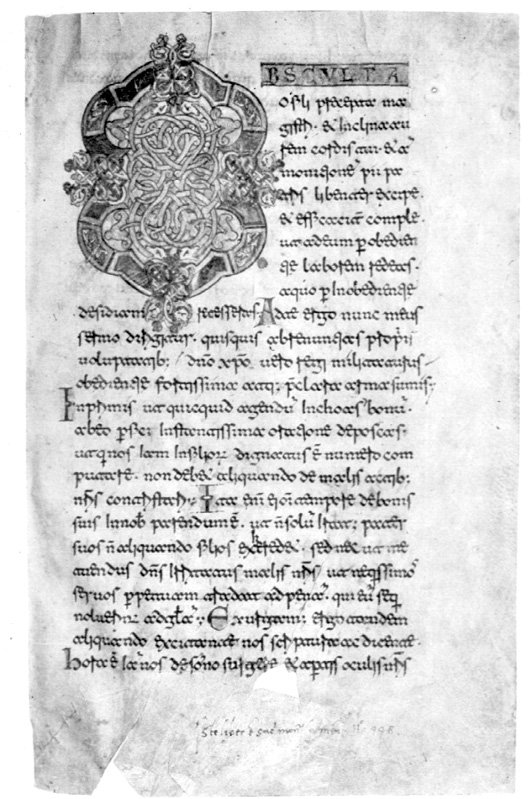 OBSCVLTA
o fili precepta ma
gistri. & inclina au
rem cordis tui. & ad
monitione pii pa
tris libenter excipe.
& efficaciter comple.
ut ad eum p obedien
tie laborem redeas.
a quo p inobedientie
desidiam recesseras Ad te ergo nunc meus
sermo dirigitur. quisquis abrenuntians propriis
voluptatib; dño xpo vero regi militaturus
obedientie fortissima atq; pclara arma sumis;
Inprimis ut quicquid agendū inchoas bonū.
ab eo pfici instantissima oratione deposcas.
ut qui nos iam in filior dignatus ē numero com
putare. non debet aliquando de malis actib;
nris contristari; Ita enī ei omi tempore de bonis
suis in nob parendum ē. ut n solū iratus pater
suos n aliquando filios exheredet. sed nec ut me
tuendus dns irritatus malis nris ut nequissimos
servos ppetuam tradat ad penā. qui eū sequi
noluerint ad gliam; Exurgamus ergo tandem
aliquando excitante nos scriptura ac dicente.
Hora ē iā nos de sōno surgere & apertis oculis nris
Iste liber ē sacri